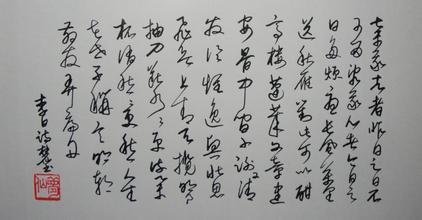 棄我去者昨日之日不
可留亂我心者今日之
日多煩憂長風萬里
送秋雁對此可以酣
高樓蓬萊文章建
安骨中間小謝又清
發俱懷逸興壯思
飛欲上青天攬明月
抽刀斷水水更流舉
杯消愁愁更愁人生
在世不稱意明朝
散髮弄扁舟
李白詩